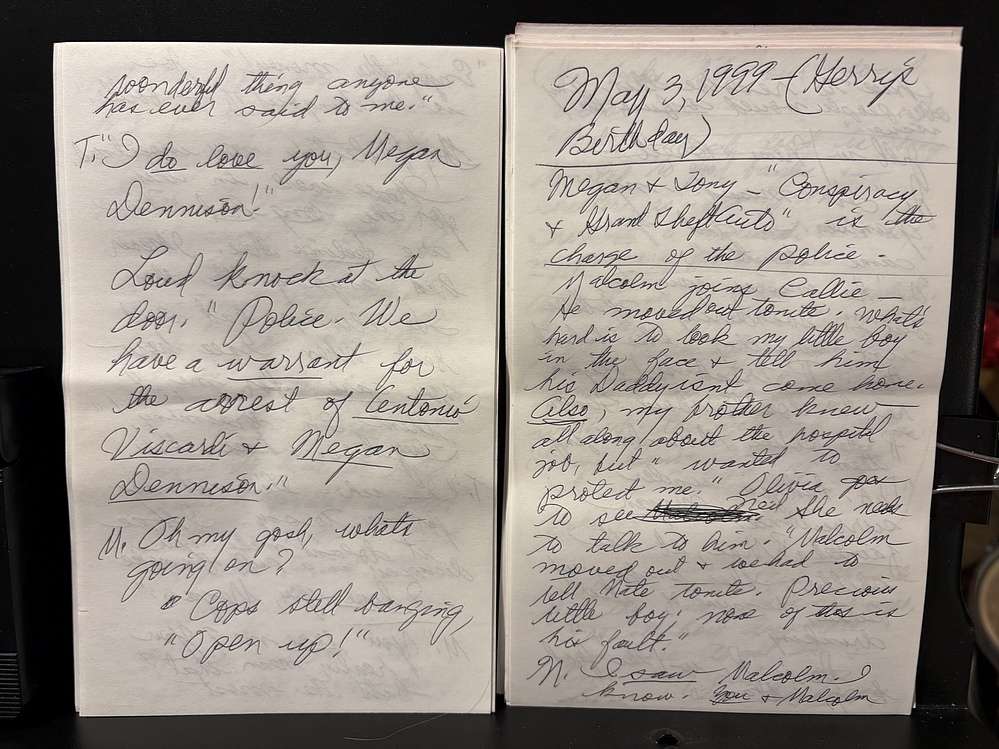 wonderful thing anyone
has ever said to me."
T. "I do love you, Megan
Dennison!"
Loud knock at the
door. "Police. We
have a warrant for
the arrest of Antonio
Viscardi & Megan
Dennison."
M. Oh my gosh, whats
going on?
Cops still banging,
"Open up!"
May 3, 1999 - (Gerry's
Birthday)
Megan & Tony - "Conspiracy
& Grand Theft Auto" is the
charge of the police.
Malcolm joins Callie -
He moved out tonite. What's
hard is to look my little boy
in the face & tell him
his Daddy isnt come home.
Also, my brother knew
all along about the hospital
job, but "wanted to
protect me." Olivia goes
to see Ned. She needs
to talk to him. "Malcolm
moved out & we had to
tell Nate tonite. Precious
little boy, none of this is
his fault."
N. I saw Malcolm. I
know. You & Malcolm